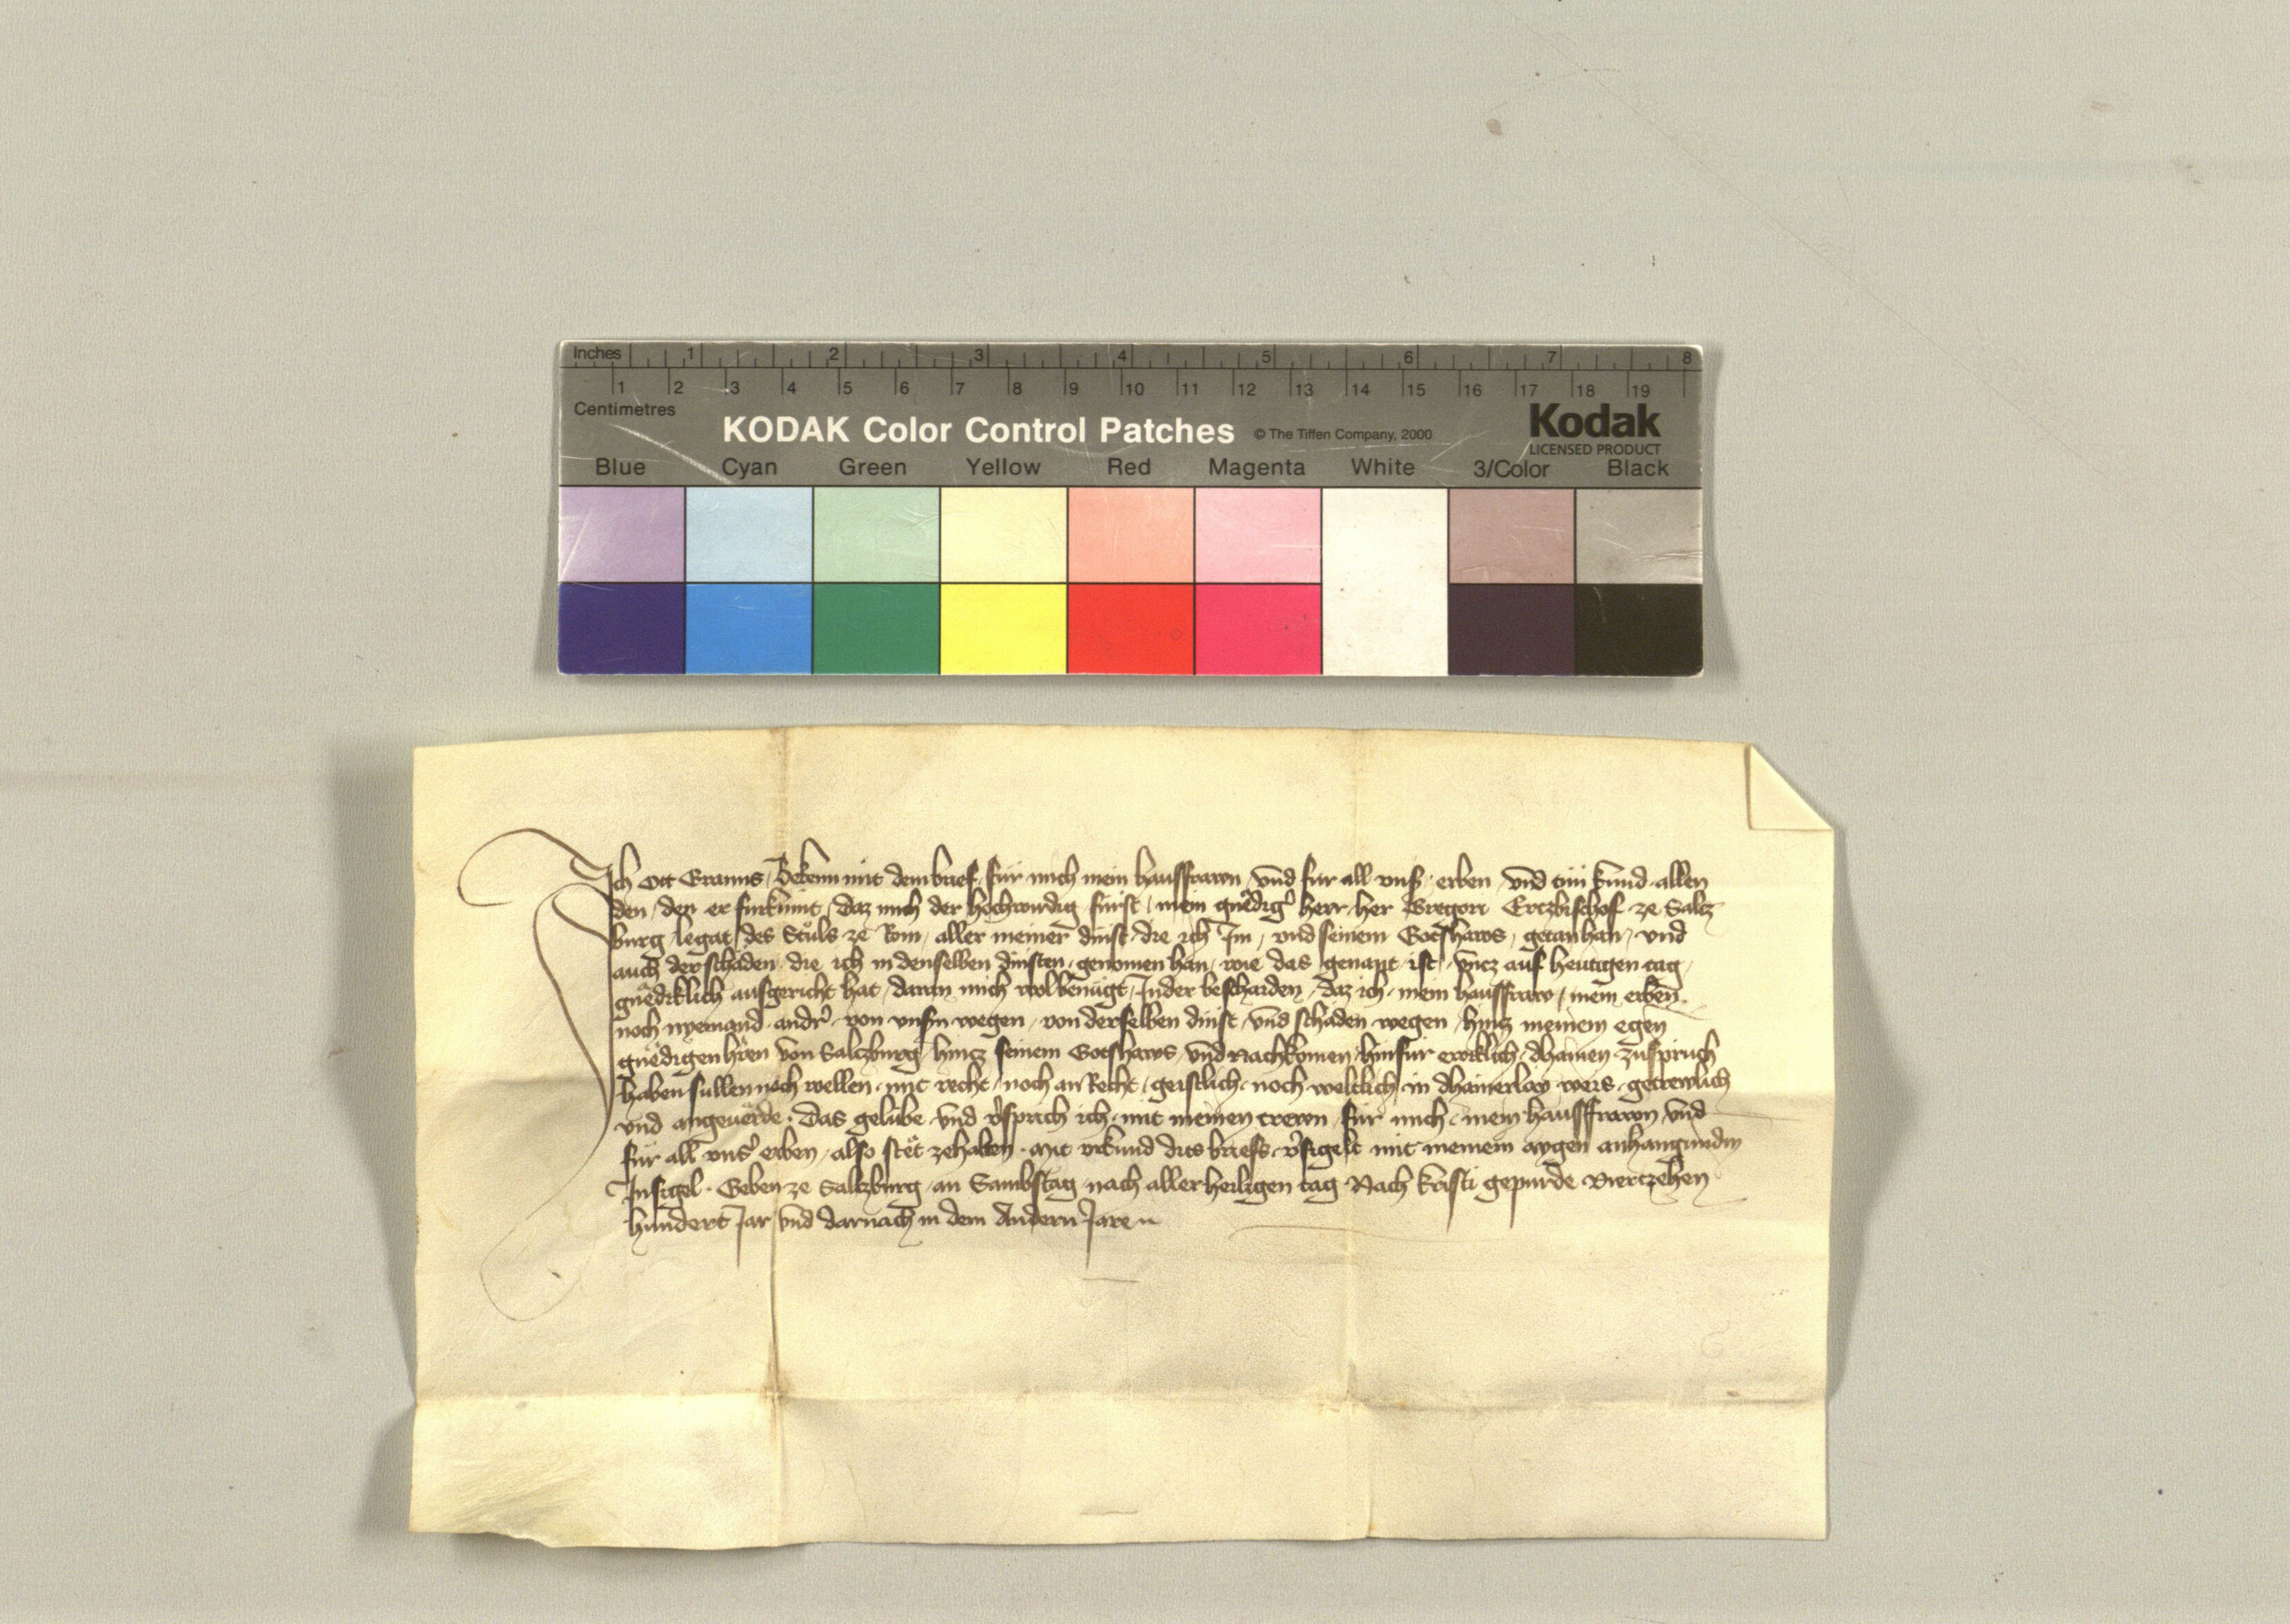 Inches 1 2 3 4 5 6 7 8
1 2 3 4 5 6 7 8 9 10 11 12 13 14 15 16 17 18 19
Centimetres
KODAK Color Control Patches © The Tiffen Company, 2000 Kodak
LICENSED PRODUCT
Blue Cyan Green Yellow Red Magenta White 3/Color Black
Ich Ott bekenn mit dem brief, für mich mein hausfrawn, vnd für all vns erben, vnd tun kund allen
den, den er furkumt, daz mich der hochwirdig fürst, mein gnedig herr, her Gregori Erczbischof ze Salcz
burg legat des Stuls ze Rom, aller meiner dinst, die ich Im, vnd seinem Gotshaws, getan han, vnd
auch der schaden, die ich in denselben dinsten, genomen han, wie das genant ist, vncz auf heutigen tag,
gnedicklich ausgericht hat, daran mich wolbenugt, In der beschaiden, daz ich, mein hausfraw, mein erben
noch nyemand andr von vnsn wegen, von derselben dinst, vnd schaden wegen, hincz meinem egen
gnedigen hren von Salczburg, hincz seinem Gotshaws, vnd Nachkomen, hinfür ewiklich, dhainen zuspruch
haben sullen noch wellen, mit recht, noch an Recht, geistlich, noch weltlich, in dhainerlay weis, getrewlich
vnd angeuerde. Das gelub vnd vsprich ich, mit meinen trewn, für mich, mein hausfrawn, vnd
für all vns erben, also stet zehaben. Mit vrkund dics briefs, vsigelt mit meinem aygen anhangundm
Insigel. Geben ze Salczburg, an Sambstag nach allerheiligen tag Nach kristi gepurde vierczehen
hundert Jar vnd darnach in dem Andern Jare